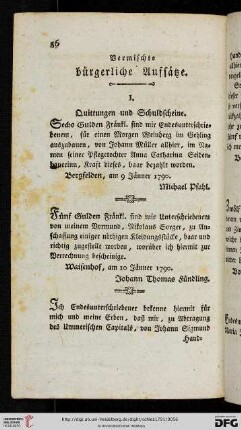 86
Vermischte
bürgerliche Aufsätze.
I.
Quittungen und Schuldscheine.
Sechs Gulden Fränkl. sind mir Endesunterschrie-
benem, für einen Morgen Weinberg im Gehling
auszubauen, von Johann Müller allhier, im Na-
men seiner Pflegetochter Anna Catharina Seiden
bauerinn, Kraft dieses, baar bezahlt worden.
Bergfelden, am 9 Jänner 1790.
Michael Pfahl.
Fünf Gulden Fränkl. sind mir Unterschriebenem
von meinem Vormund, Nikolaus Sorger, zu An-
schaffung einiger nöthigen Kleidungsstücke, baar und
richtig zugestellt worden, worüber ich hiermit zur
Verrechnung bescheinige.
Waisenhof, am 10 Jänner 1790.
Johann Thomas Fündling.
Ich Endesunterschriebener bekenne hiermit für
mich und meine Erben, daß mir, zu Abtragung
des Ummerischen Capitals, von Johann Sigmund
Hand-
DFG